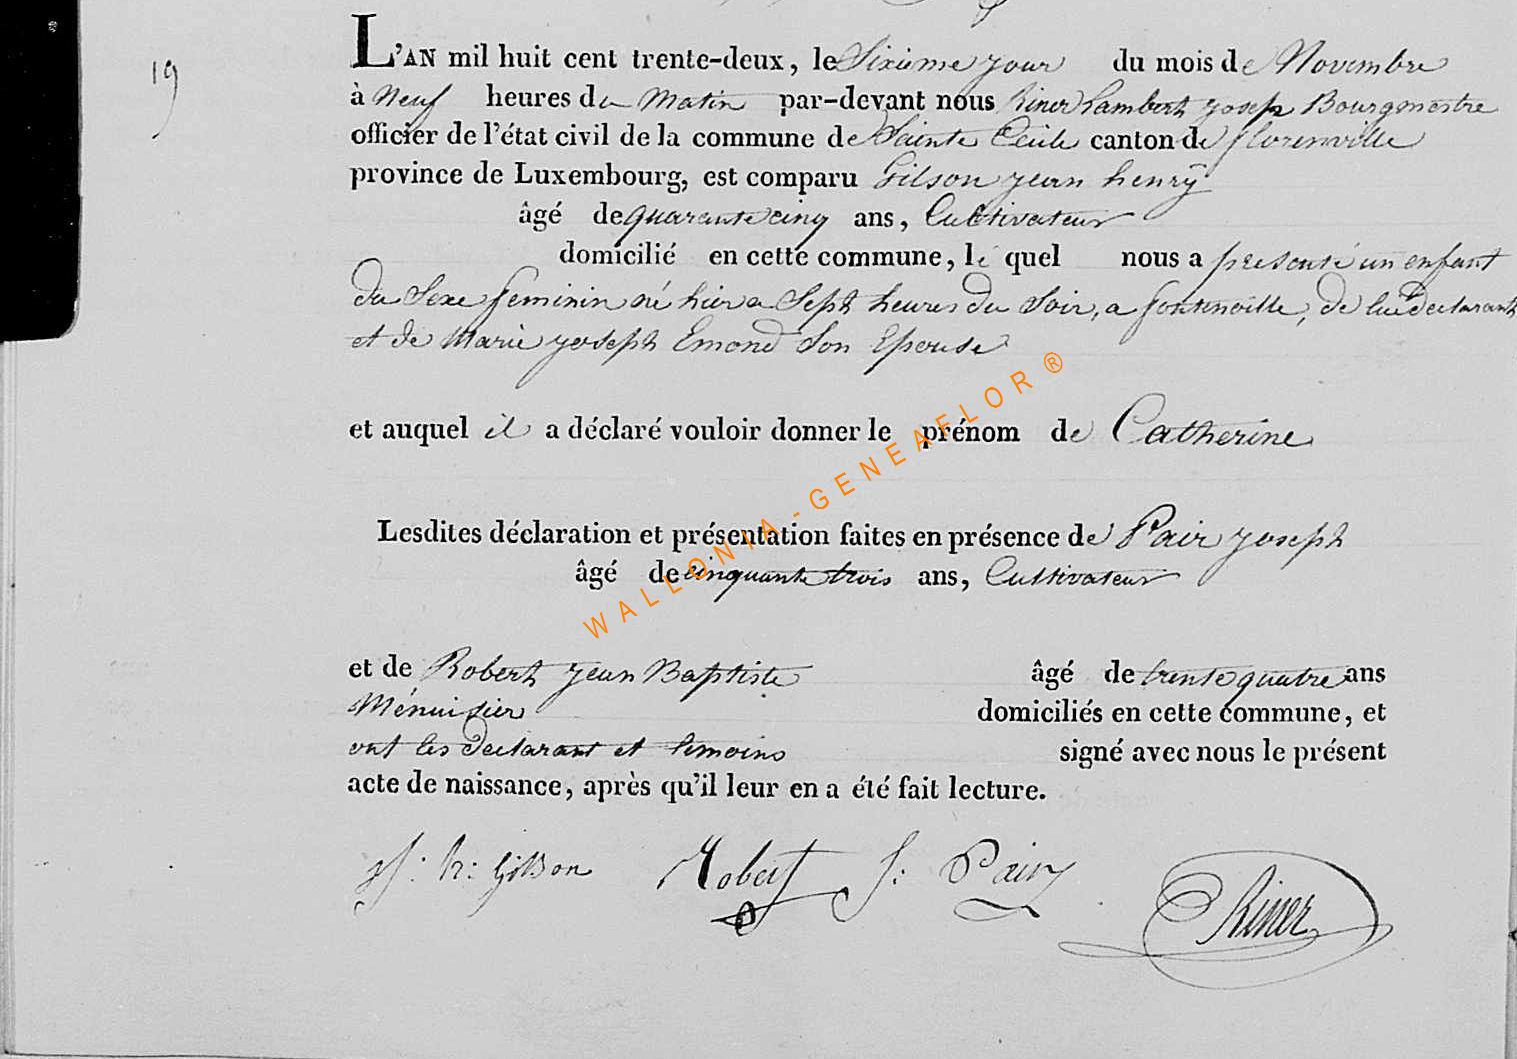 19
L'AN mil huit cent trente-deux, le Sixieme jour du mois de Novembre
à Neuf heures du Matin par-devant nous Riner Lambert Joseph Bourgmestre
officier de l'état civil de la commune de Sainte Cecile canton de florenville
province de Luxembourg, est comparu Gilson jean henrÿ
âgé de quarante cinq ans, Cultivateur
domicilié en cette commune, le quel nous a presenté un enfant
du Sexe feminin né hier a Sept heures du Soir, a fontenoille, de lui declarant
et de Marie joseph Emond Son Epouse
et auquel il a déclaré vouloir donner le prénom de Catherine
Lesdites déclaration et présentation faites en présence de Pair joseph
âgé de cinquante trois ans, Cultivateur
et de Robert jean Baptiste âgé de trente quatre ans
Ménuisier domiciliés en cette commune, et
ont les declarant et temoins signé avec nous le présent
acte de naissance, après qu'il leur en a été fait lecture.
j: h: Gilson Robert J: Pair Riner
WALLONIA-GENEAFLOR®